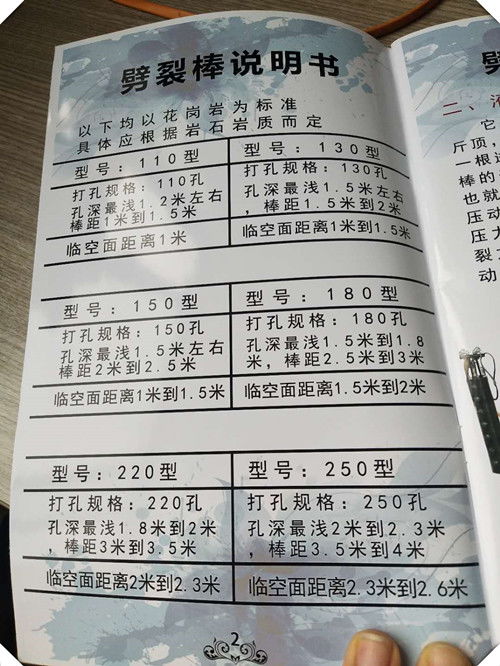 劈裂棒说明书
以下均以花岗岩为标准
具体应根据岩石岩质而定
型号：110型
打孔规格：110孔
孔深最浅1.2米左右
棒距1米到1.5米
临空面距离1米
型号：130型
打孔规格：130孔
孔深最浅1.5米左右
，棒距1.5米到2米
临空面距离1米到1.5米
型号：150型
打孔规格：150孔
孔深最浅1.5米左右
棒距2米到2.5米
临空面距离1米到1.5米
型号：180型
打孔规格：180孔
孔深最浅1.5米到1.8
米，棒距2.5米到3米
临空面距离1.5米到2米
型号：220型
打孔规格：220孔
孔深最浅1.8米到2米
，棒距3米到3.5米
临空面距离2米到2.3米
型号：250型
打孔规格：250孔
孔深最浅2米到2.3米
，棒距3.5米到4米
临空面距离2.3米到2.6米
2
二、
它
斤顶，
一根
棒的
也就
压动
压大
裂
动